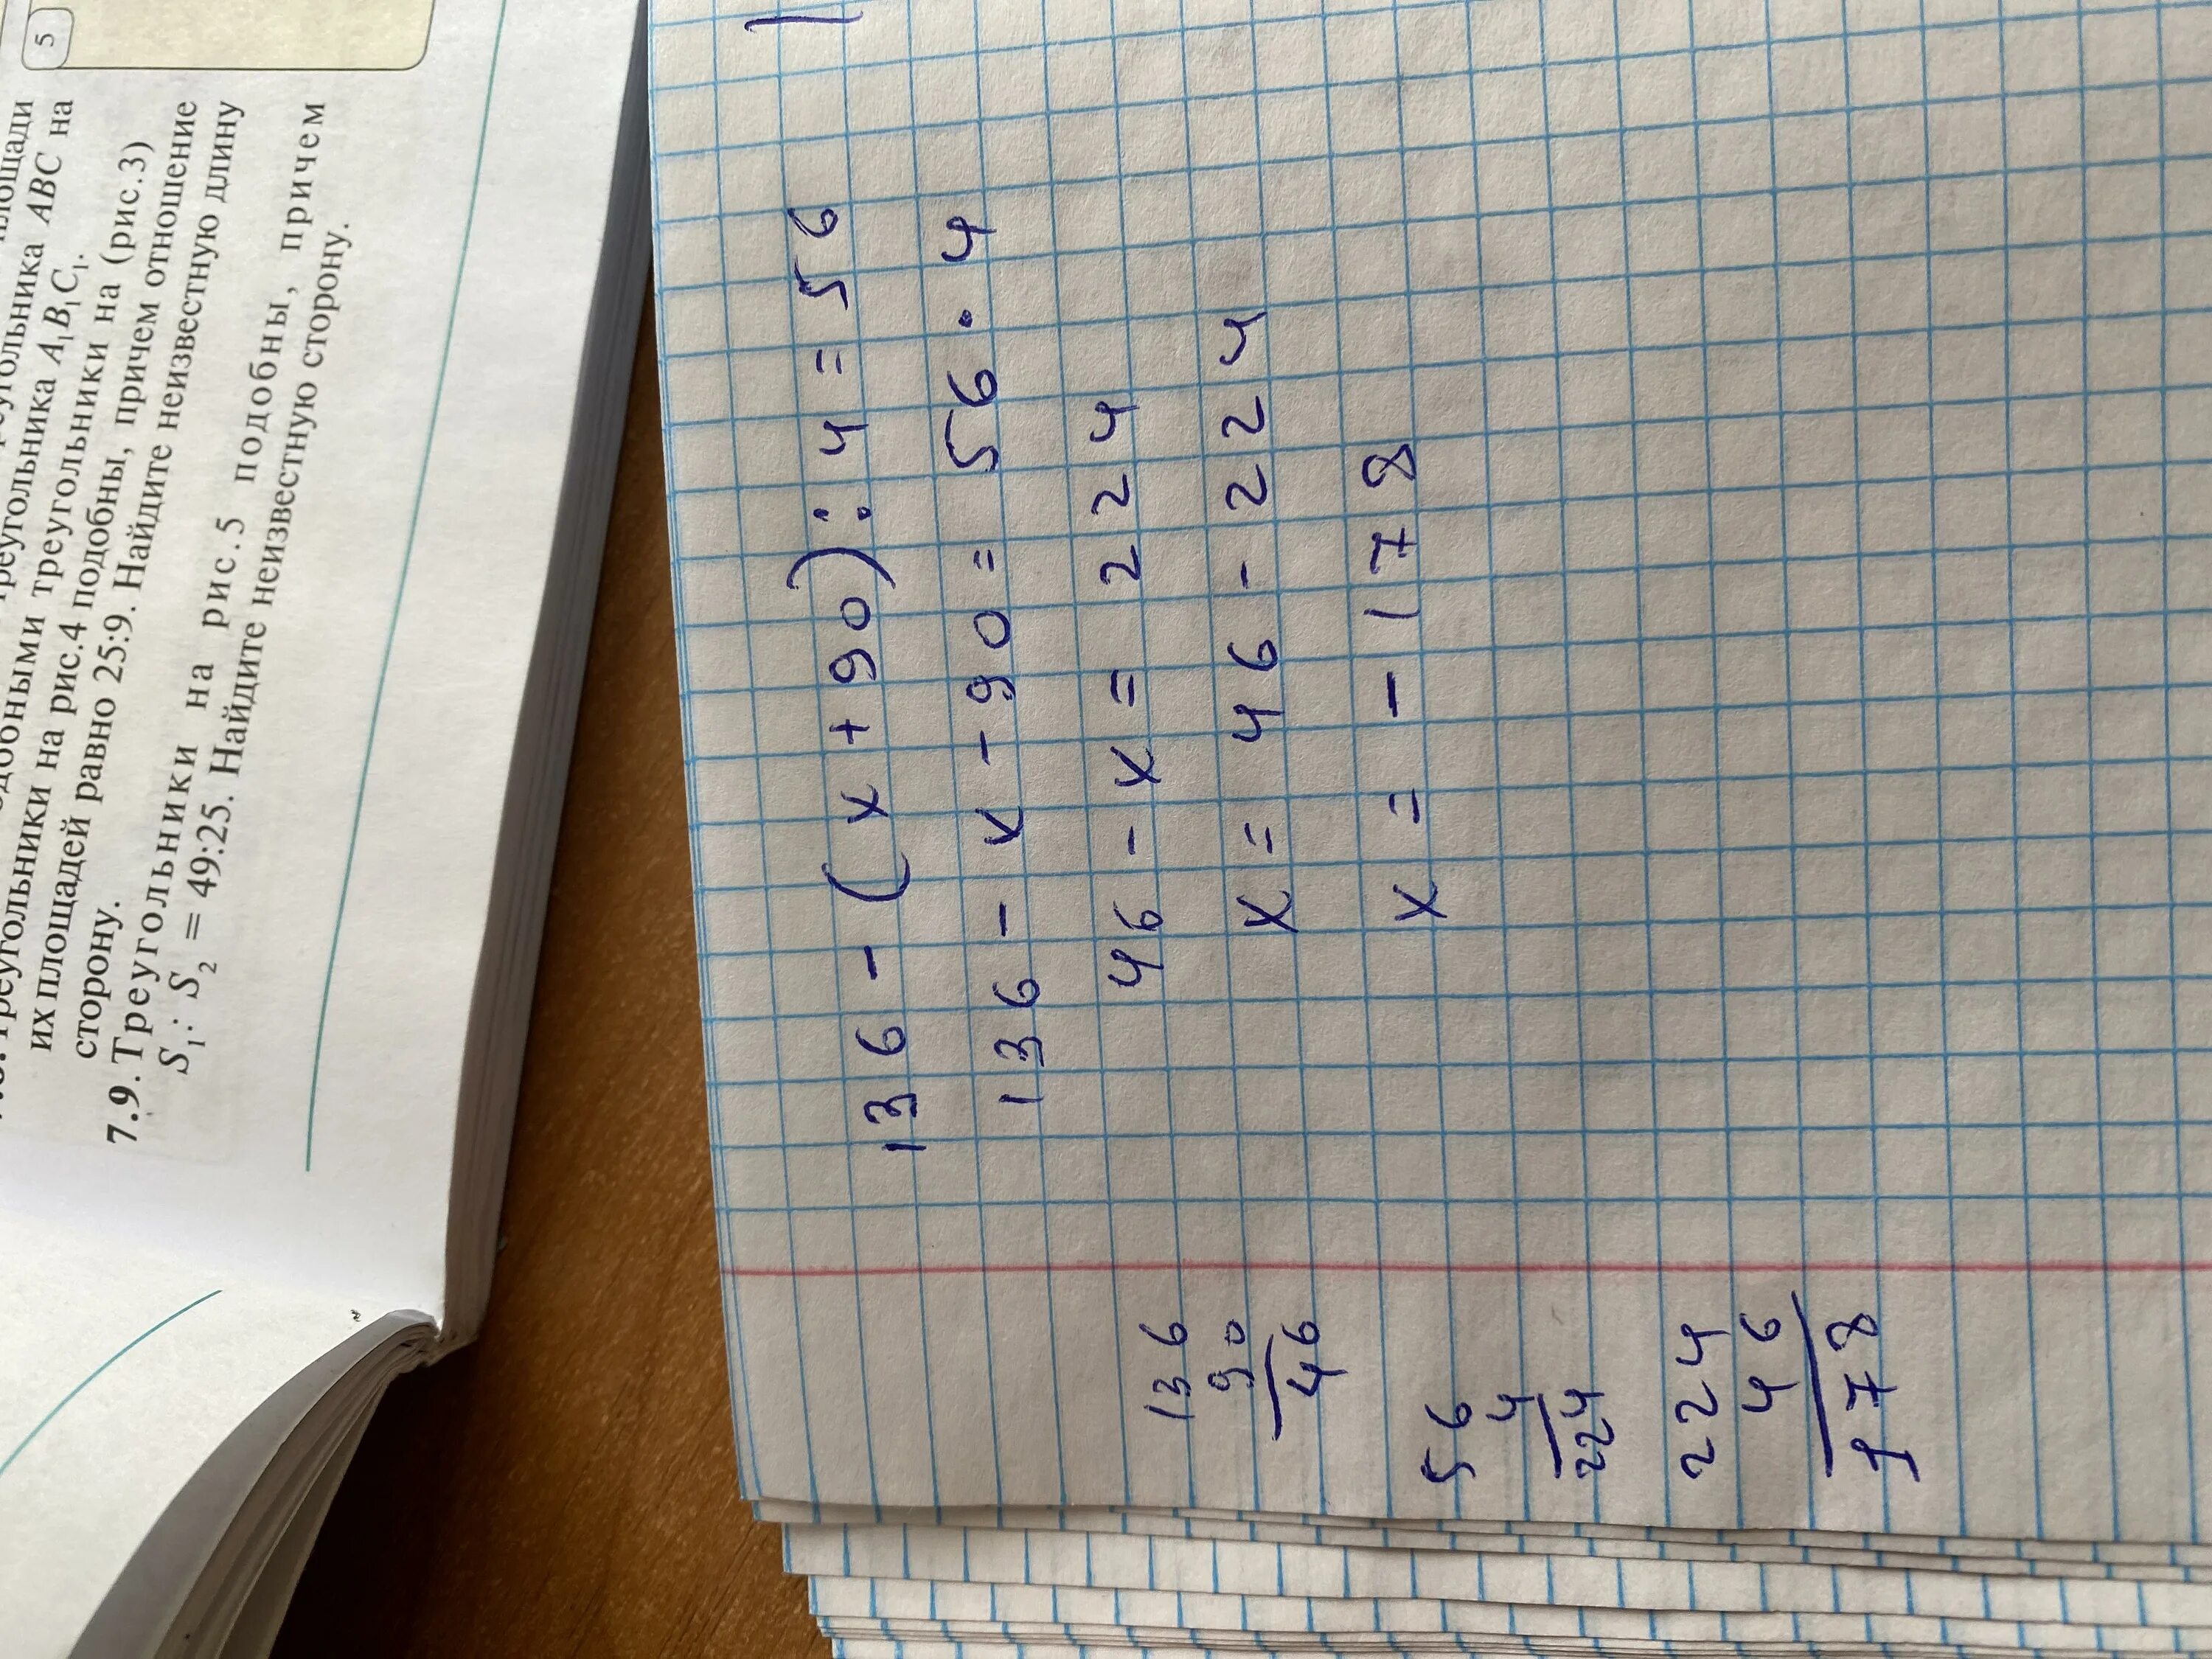 5
площади
треугольника ABC на
треугольника A₁B₁C₁.
подобными треугольники на (рис.3)
Треугольники на рис.4 подобны, причем отношение
их площадей равно 25:9. Найдите неизвестную длину
сторону.
7.9. Треугольники на рис.5 подобны, причем
S₁: S₂ = 49:25. Найдите неизвестную сторону.
136 - (x + 90) : 4 = 56
136 - x - 90 = 56 · 4
46 - x = 224
x = 46 - 224
x = - 178
136
90
46
56
4
224
224
46
178